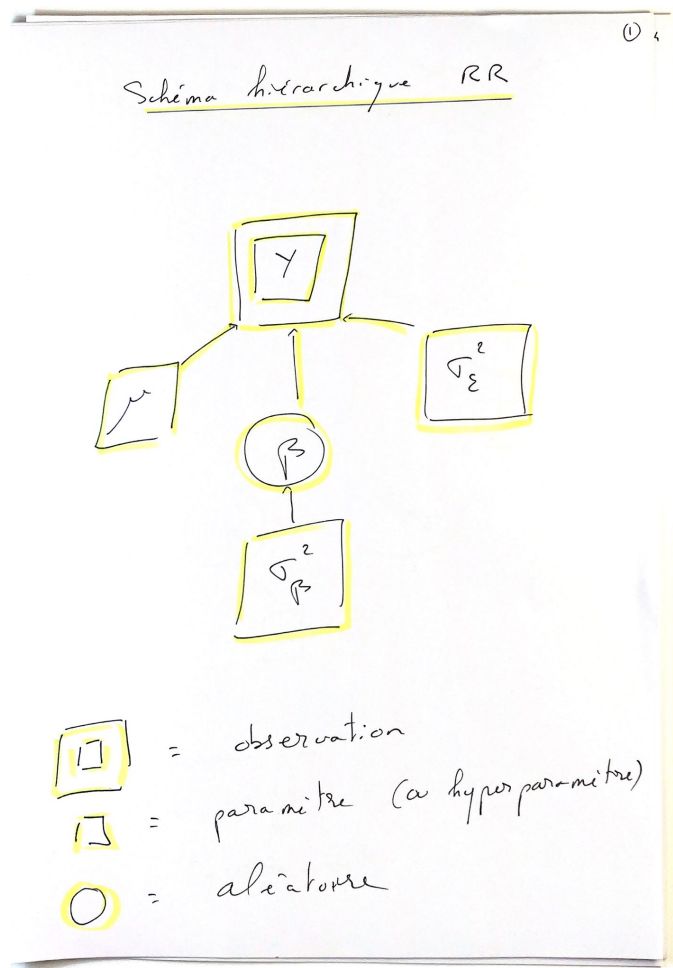 ①
Schéma hiérarchique RR
Y
μ
σ²_ε
β
σ²_β
= observation
= paramètre (ou hyperparamètre)
= aléatoire